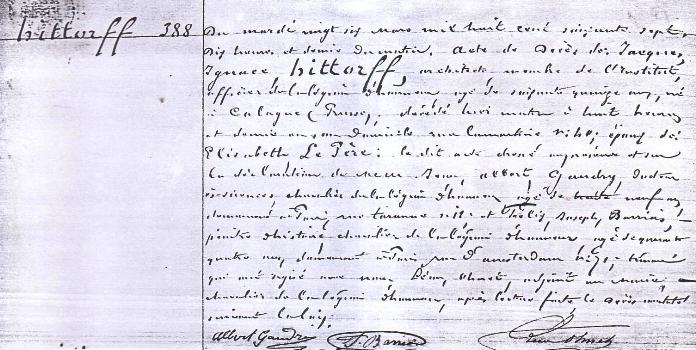 hittorff 388
Du mardi vingt six Mars mil huit cent soixante sept,
dix heures et demie du matin. acte de décès de Jacques,
Ignace, hittorff, architecte, membre de l'Institut,
officier de la légion d'honneur agé de soixante quinze ans, né
à Cologne (Prusse), décédé hier matin à huit heures
et demie en son domicile rue Lamartine époux de
Elisabeth Le Père: le dit acte dressé en présence et sur
la déclaration de Albert Gaudry docteur
ès sciences, chevalier de la légion d'honneur, agé de trente neuf ans
demeurant à Paris, rue taranne et Félix, Joseph, Barrias,
peintre d'histoire chevalier de la légion d'honneur agé de quarante
quatre ans, demeurant à Paris, rue d'amsterdam témoins
qui ont signé avec nous adjoint au Maire,
chevalier de la légion d'honneur, après lecture faite le décès constaté
suivant la loi.
Albert Gaudry F. Barrias